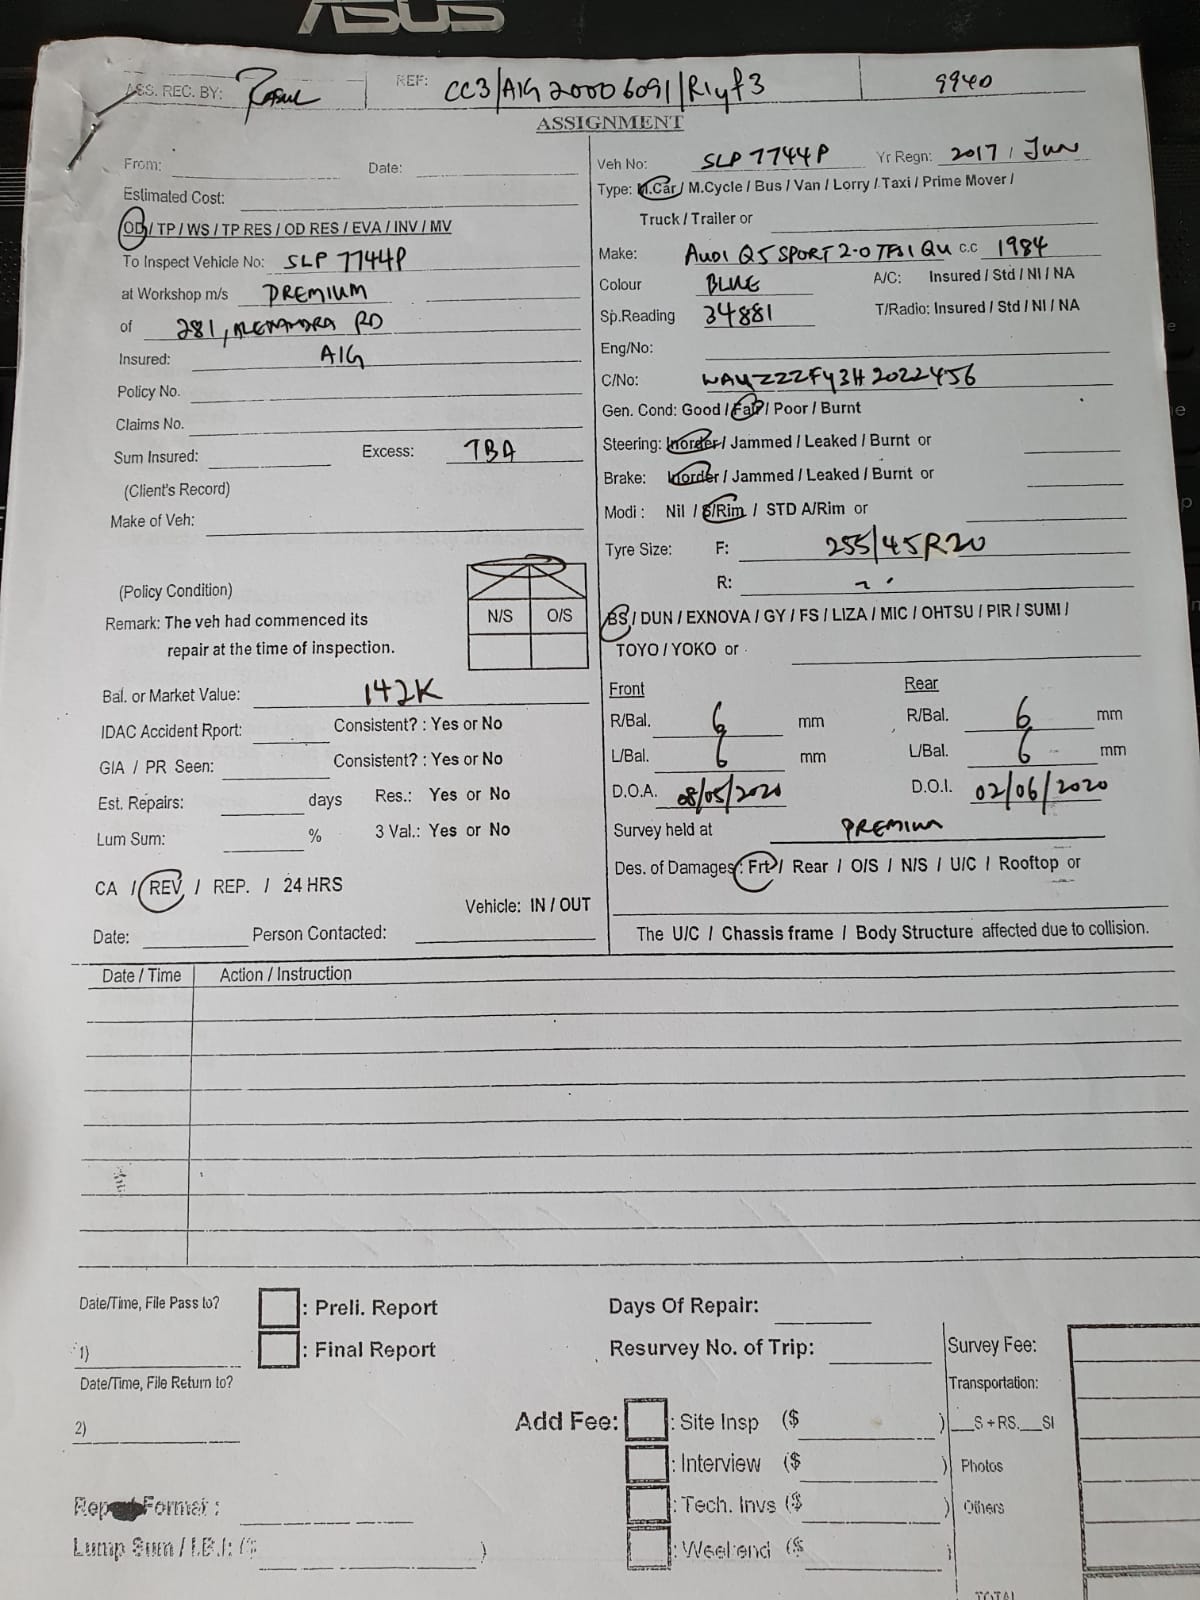 ASUS
ASS. REC. BY: REF: CC3/AIG20006091/R1yf3 9940
ASSIGNMENT
From: Date:
Estimated Cost:
OD / TP / WS / TP RES / OD RES / EVA / INV / MV
To Inspect Vehicle No: SLP 7744P
at Workshop m/s PREMIUM
of 281, ALEXANDRA RD
Insured: AIG
Policy No.
Claims No.
Sum Insured: Excess: TBA
(Client's Record)
Make of Veh:
(Policy Condition)
Remark: The veh had commenced its
repair at the time of inspection.
N/S O/S
Bal. or Market Value: 142K
IDAC Accident Rport: Consistent? : Yes or No
GIA / PR Seen: Consistent? : Yes or No
Est. Repairs: days Res.: Yes or No
Lum Sum: % 3 Val.: Yes or No
CA / REV / REP. / 24 HRS
Vehicle: IN / OUT
Date: Person Contacted:
Veh No: SLP 7744P Yr Regn: 2017 / Jun
Type: M.Car / M.Cycle / Bus / Van / Lorry / Taxi / Prime Mover /
Truck / Trailer or
Make: AUDI Q5 SPORT 2.0 TFSI QU c.c 1984
Colour BLUE A/C: Insured / Std / NI / NA
Sp.Reading 34881 T/Radio: Insured / Std / NI / NA
Eng/No:
C/No: WAUZZZFY3H2022456
Gen. Cond: Good / Fair / Poor / Burnt
Steering: Inorder / Jammed / Leaked / Burnt or
Brake: Inorder / Jammed / Leaked / Burnt or
Modi : Nil / S/Rim / STD A/Rim or
Tyre Size: F: 255/45R20
R: "
BS / DUN / EXNOVA / GY / FS / LIZA / MIC / OHTSU / PIR / SUMI /
TOYO / YOKO or
Front Rear
R/Bal. 6 mm R/Bal. 6 mm
L/Bal. 6 mm L/Bal. 6 mm
D.O.A. 08/05/2020 D.O.I. 02/06/2020
Survey held at PREMIUM
Des. of Damages : Frt / Rear / O/S / N/S / U/C / Rooftop or
The U/C / Chassis frame / Body Structure affected due to collision.
Date / Time Action / Instruction
Date/Time, File Pass to?
1)
Date/Time, File Return to?
2)
: Preli. Report
: Final Report
Days Of Repair:
Resurvey No. of Trip:
Add Fee: : Site Insp ($ )
: Interview ($ )
: Tech. Invs ($ )
: Weekend ($ )
Survey Fee:
Transportation:
__S + RS.__SI
Photos
Others
TOTAL
Report Format :
Lump Sum / I.B.I: ($ )